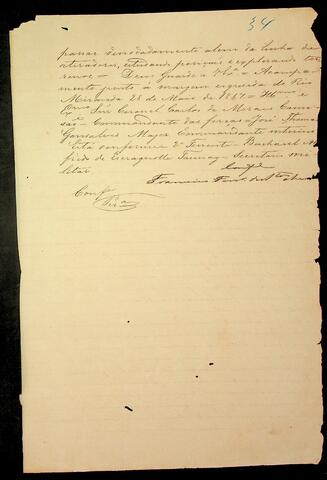 34
passar denodadamente alem da linha de
atiradores, estudando posições e explorando ter-
reno = Deus Guarde a V.Exª = Acampa-
mento junto á margem esquerda do Rio
Miranda 28 de Maio de 1867 = Illmo e
Exmo Snr Coronel Carlos de Moraes Cami-
são = Commandante das forças = José Thomas
Gonsalves Major Commandante interino
Está conforme O Tenente Bacharel Al-
fredo de Escragnolle Taunay = Secretario mi-
litar.
Confe
Francisco
Confe